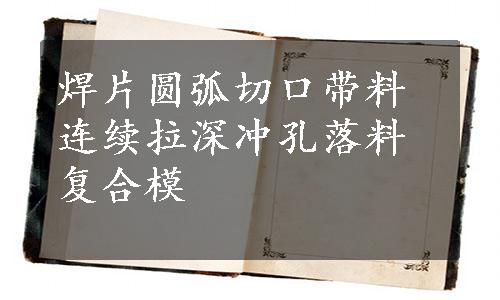 焊片圆弧切口带料
连续拉深冲孔落料
复合模